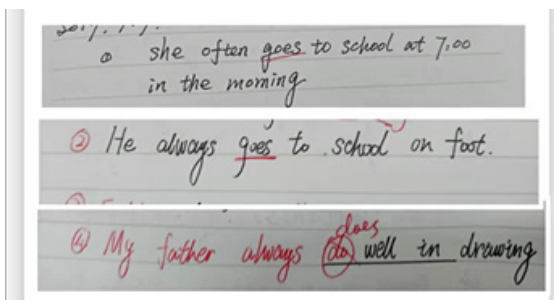 ① she often goes to school at 7:00
in the morning
② He always goes to school on foot.
does
④ My father always do well in drawing